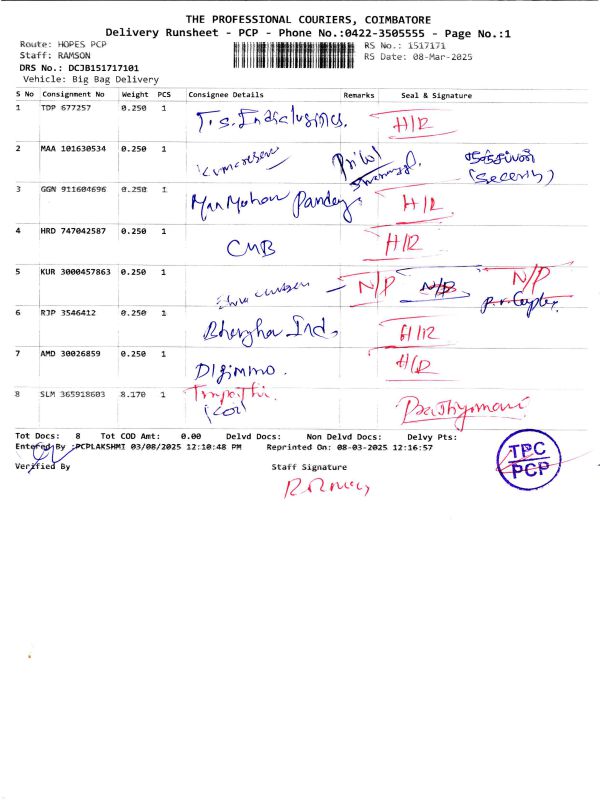 THE PROFESSIONAL COURIERS, COIMBATORE
Delivery Runsheet - PCP - Phone No.:0422-3505555 - Page No.:1
Route: HOPES PCP
RS No.: 1517171
Staff: RAMSON
RS Date: 08-Mar-2025
DRS No.: DCJB151717101
Vehicle: Big Bag Delivery
S No Consignment No Weight PCS Consignee Details Remarks Seal & Signature
1 TDP 677257 0.250 1 H/R
2 MAA 101630534 0.250 1
3 GGN 911604696 0.250 1 Man Mohan Pandey H/R
4 HRD 747042587 0.250 1 CMB H/R
5 KUR 3000457863 0.250 1 N/P N/P
6 RJP 3546412 0.250 1 Ind. H/R
7 AMD 30026859 0.250 1 H/R
8 SLM 365918603 8.170 1
Tot Docs: 8 Tot COD Amt: 0.00 Delvd Docs: Non Delvd Docs: Delvy Pts:
Entered By :PCPLAKSHMI 03/08/2025 12:10:48 PM Reprinted On: 08-03-2025 12:16:57
Verified By Staff Signature
TPC
PCP